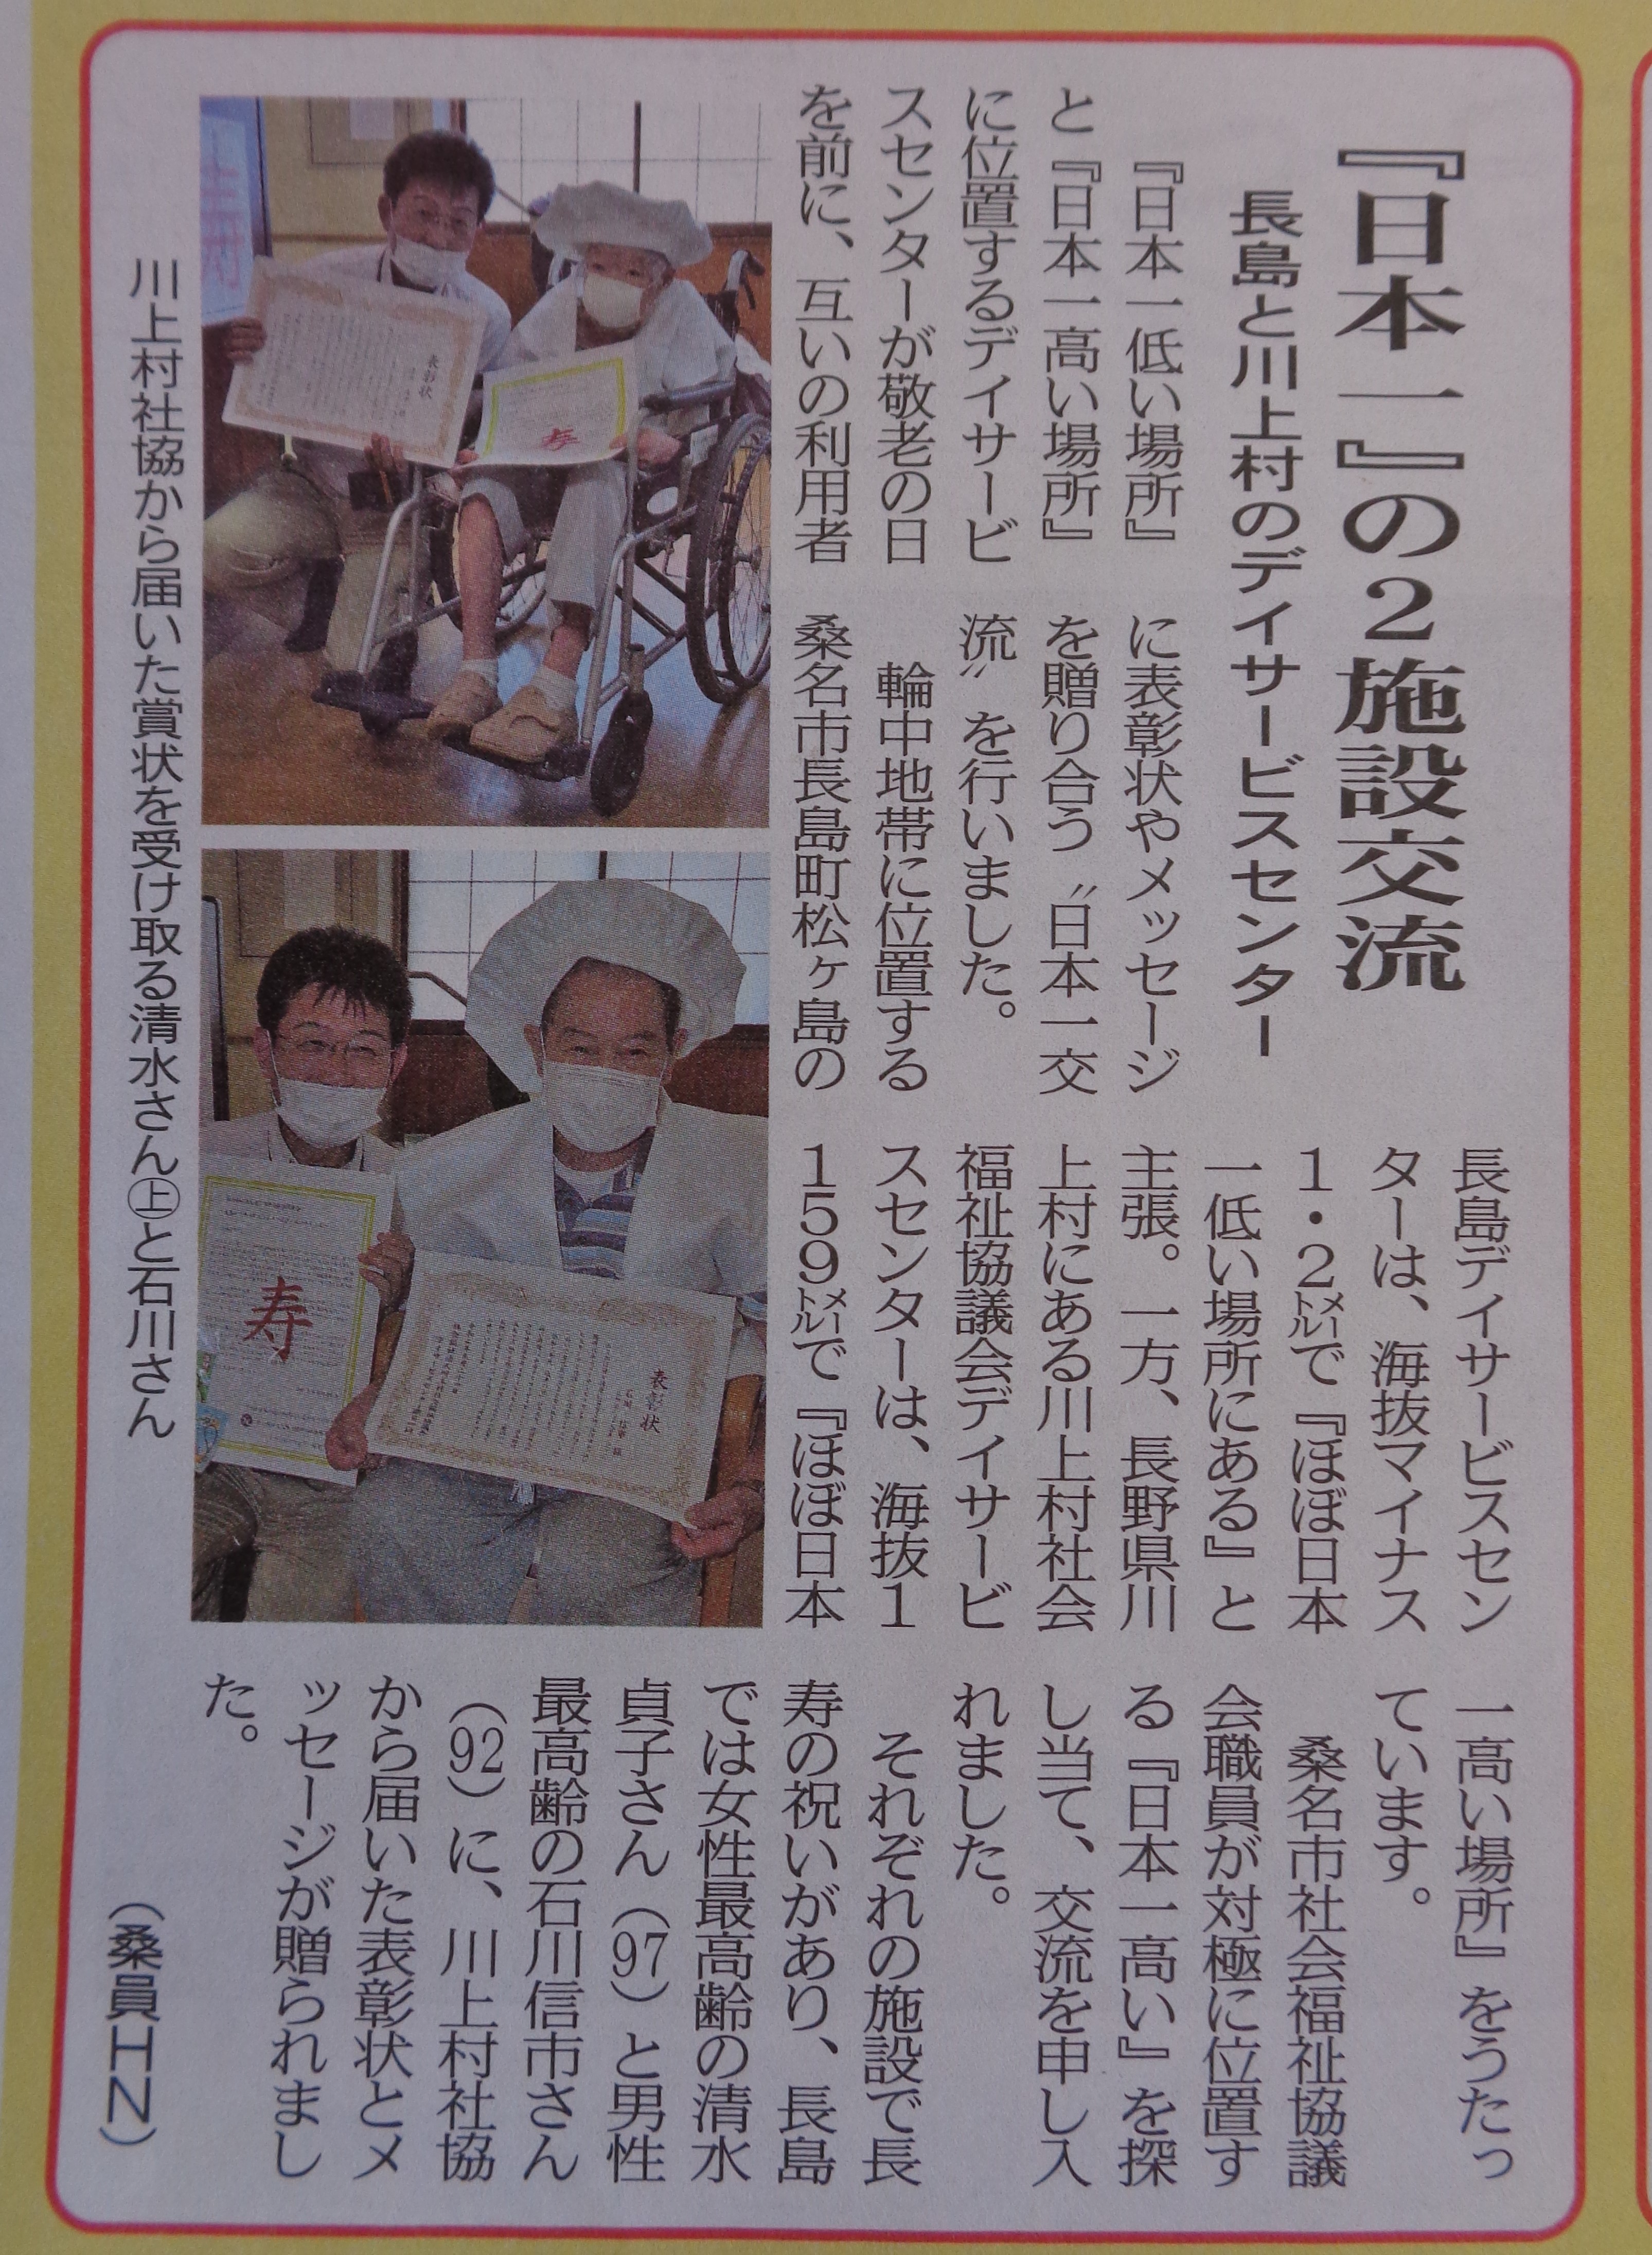 『日本一』の2施設交流
長島と川上村のデイサービスセンター
『日本一低い場所』
と『日本一高い場所』
に位置するデイサービ
スセンターが敬老の日
を前に、互いの利用者
に表彰状やメッセージ
を贈り合う〝日本一交
流〟を行いました。
輪中地帯に位置する
桑名市長島町松ヶ島の
長島デイサービスセン
ターは、海抜マイナス
1・2㍍で『ほぼ日本
一低い場所にある』と
主張。一方、長野県川
上村にある川上村社会
福祉協議会デイサービ
スセンターは、海抜1
159㍍で『ほぼ日本
一高い場所』をうたっ
ています。
桑名市社会福祉協議
会職員が対極に位置す
る『日本一高い』を探
し当て、交流を申し入
れました。
それぞれの施設で長
寿の祝いがあり、長島
では女性最高齢の清水
貞子さん（97）と男性
最高齢の石川信市さん
（92）に、川上村社協
から届いた表彰状とメ
ッセージが贈られまし
た。
（桑員ＨＮ）
川上村社協から届いた賞状を受け取る清水さん㊤と石川さん
表彰状
寿
寿
表彰状